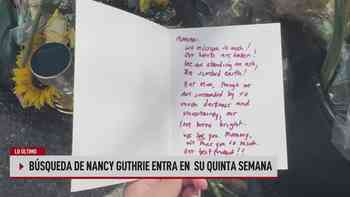 Mommy-
we miss you so much!
Our hearts are broken!
we are standing on ash,
on scorched earth!
But mom, though we
are surrounded by so
much darkness and
uncertainty, our
love burns bright.
we love you Mommy,
we miss you so much.
LO ÚLTIMO
BÚSQUEDA DE NANCY GUTHRIE ENTRA EN SU QUINTA SEMANA